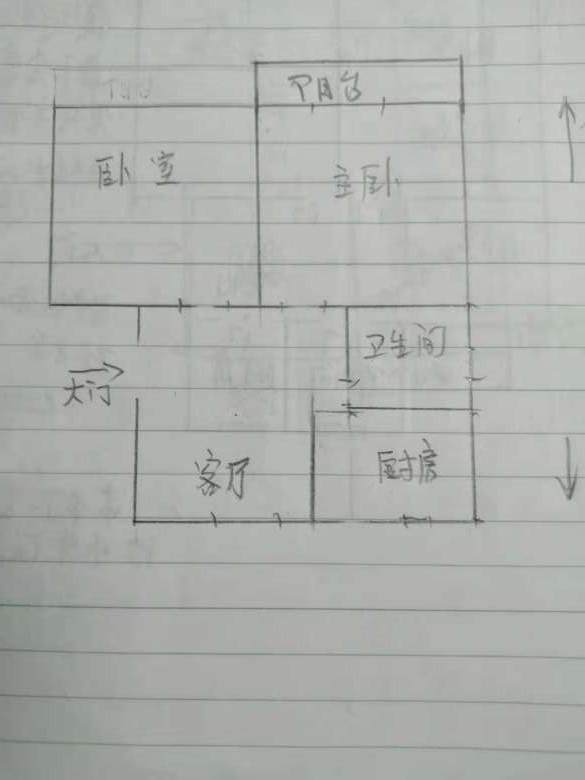 阳台
卧室
主卧
卫生间
大门
客厅
厨房